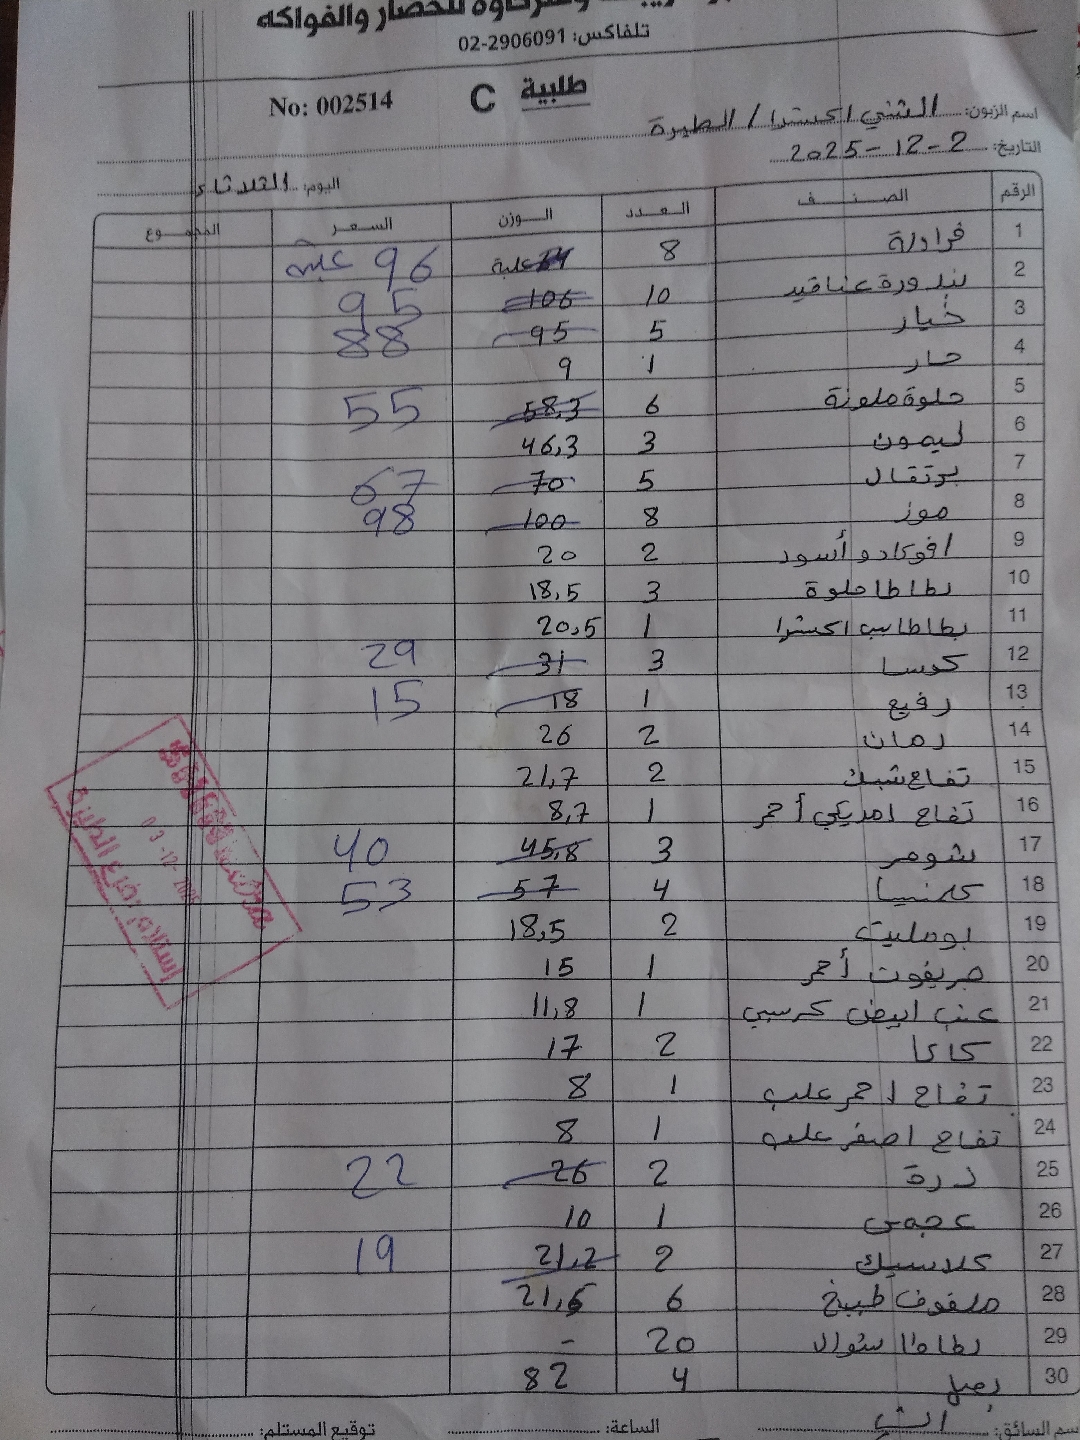 للخضار والفواكه
تلفاكس: 02-2906091
No: 002514 C طلبية
اسم الزبون: الشني اكسترا / الطيرة
التاريخ: 2-12-2025
اليوم: الثلاثاء
الرقم الصنف العدد الوزن السعر المجموع
1 فراولة 8 علبة 96 علبة
2 بندورة عناقيد 10 106 95
3 خيار 5 95 88
4 حار 1 9
5 حلوة ملونة 6 58,3 55
6 ليمون 3 46,3
7 برتقال 5 70 67
8 موز 8 100 98
9 افوكادو أسود 2 20
10 بطاطا حلوة 3 18,5
11 بطاطا بيب اكسترا 1 20,5
12 كوسا 3 31 29
13 رفيع 1 18 15
14 رمان 2 26
15 تفاح شبك 2 21,7
16 تفاح امريكي أحمر 1 8,7
17 شومر 3 45,8 40
18 كلمنتينا 4 57 53
19 بومليت 2 18,5
20 جريفوت أحمر 1 15
21 عنب ابيض كرسبي 1 11,8
22 كاكا 2 17
23 تفاح احمر علب 1 8
24 تفاح اصفر علب 1 8
25 ذرة 2 26 22
26 عجمي 1 10
27 كلاسيك 2 21,2 19
28 ملفوف طبيخ 6 21,6
29 بطاطا شوال 20 -
30 بصل 4 82
اسم السائق: الساعة: توقيع المستلم:
استلام فرع الطيرة